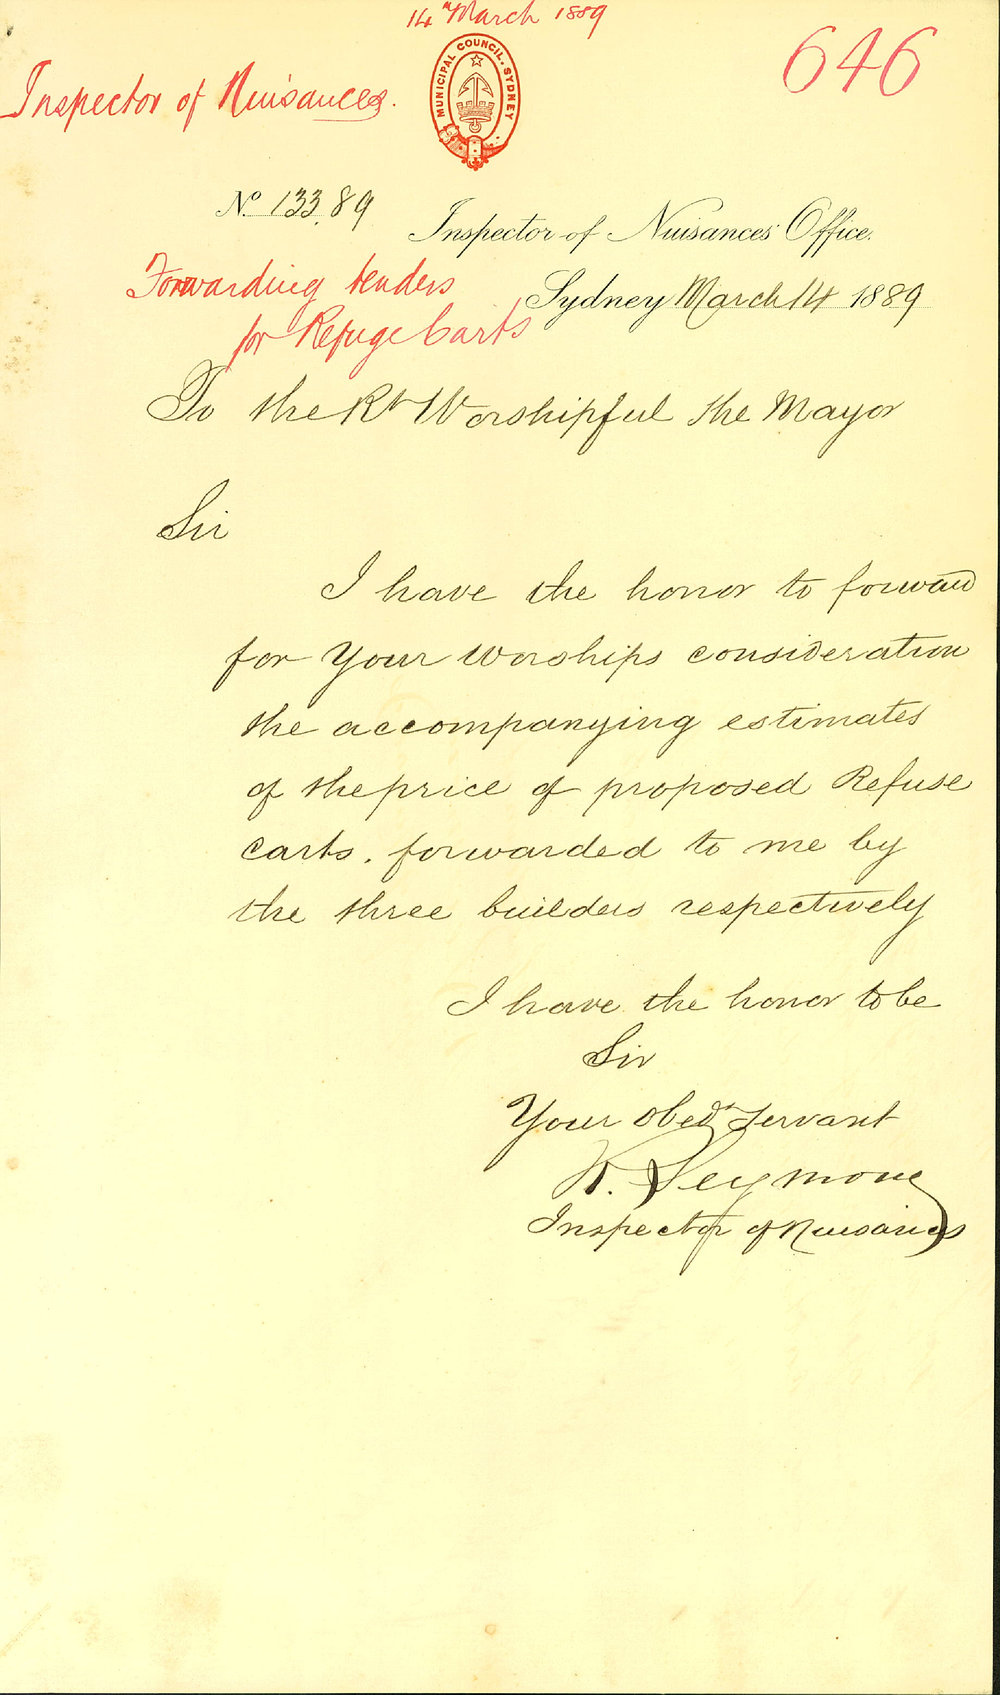 14th March 1889
646
Inspector of Nuisances.
MUNICIPAL COUNCIL. SYDNEY
No. 133.89
Inspector of Nuisances' Office.
Forwarding tenders
Sydney March 14 1889
for Refuge Carts
To the Rt Worshipful the Mayor
Sir
I have the honor to forward
for Your Worships consideration
the accompanying estimates
of the price of proposed Refuse
carts. forwarded to me by
the three builders respectively
I have the honor to be
Sir
Your Obedt Servant
R. Seymour
Inspector of Nuisances